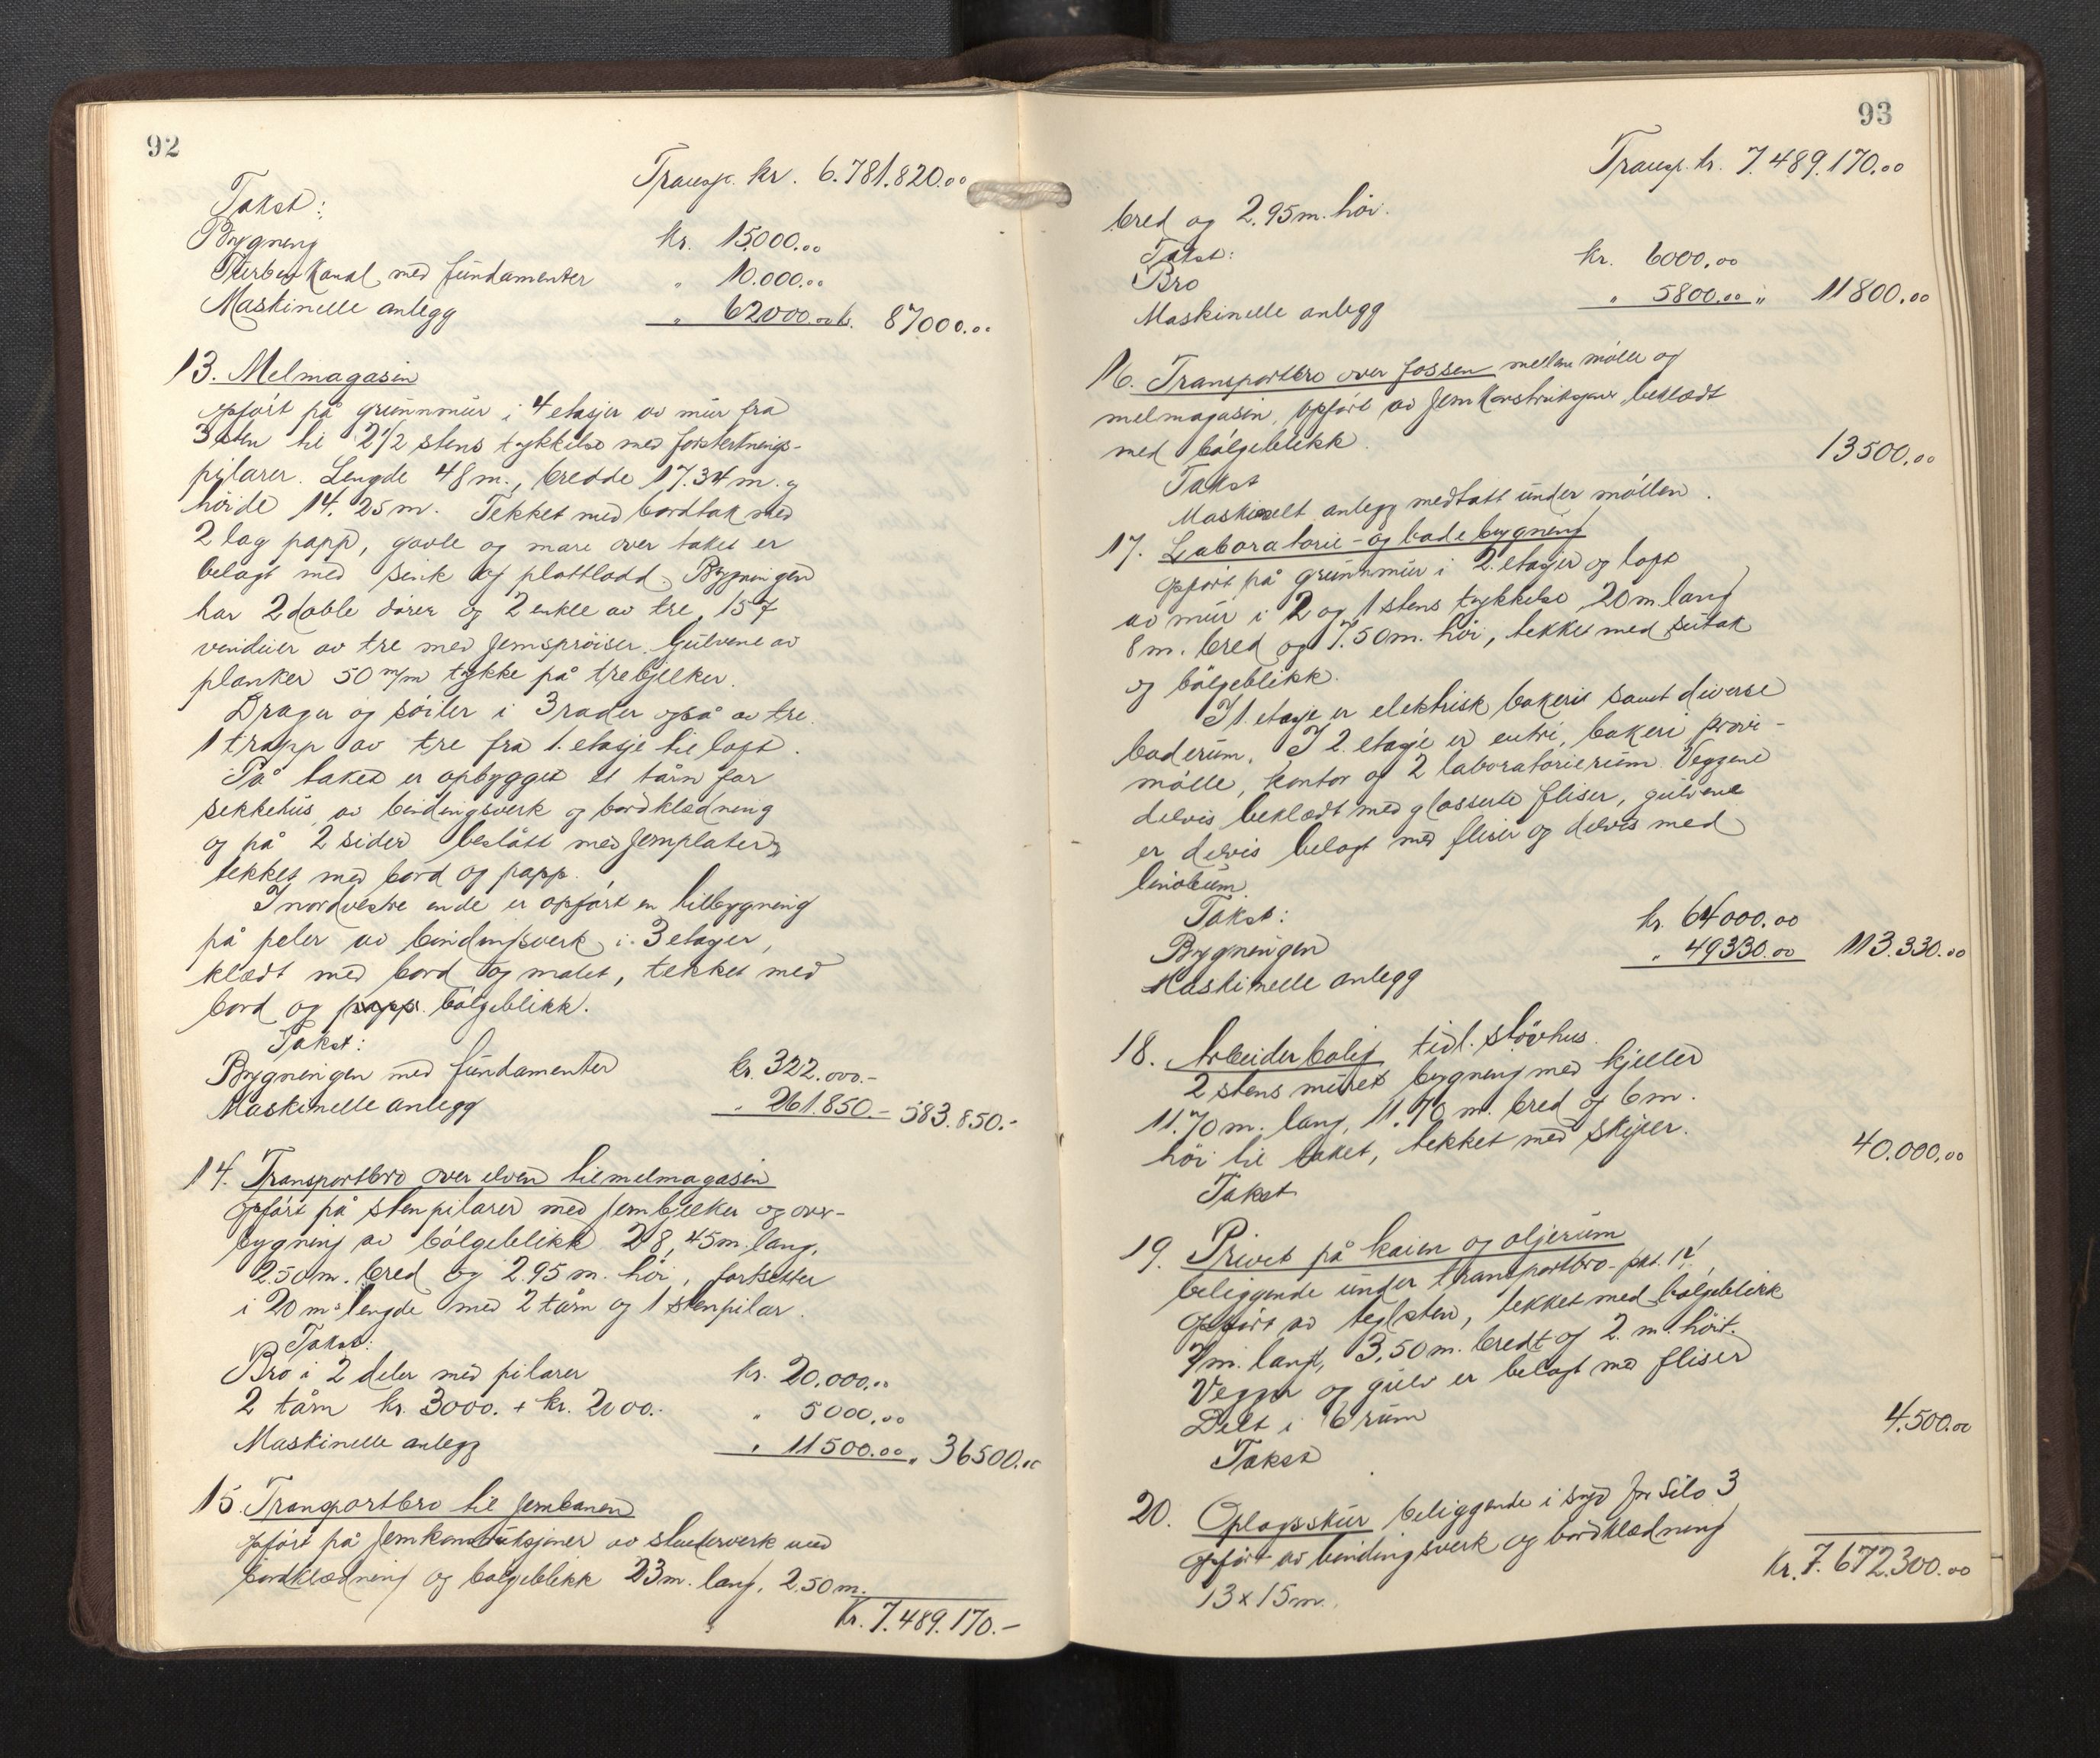 92
Transp. kr. 6.781.820.00
Takst:
Bygning kr. 15000.00
Turbinkanal med fundamenter " 10.000.00
Maskinelle anlegg " 62000.00 kr. 87000.00
13. Melmagasin
opført på grunnmur i 4 etasjer av mur fra
3 sten til 2 1/2 stens tykkelse med forsterknings-
pilarer. Lengde 48 m., bredde 17.34 m. og
høide 14.25 m. Tekket med bordtak med
2 lag papp, gavle og mare over taket er
belagt med sink og plattlodd. Bygningen
har 2 doble dører og 2 enkle av tre, 157
vinduer av tre med jernsprøiser. Gulvene av
planker 50 m/m tykke på trebjelker.
Drager og søiler i 3 rader også av tre.
1 trapp av tre fra 1. etasje til loft.
På taket er opbygget et tårn for
sekkehus av bindingsverk og bordklædning
og på 2 sider beslått med jernplater,
tekket med bord og papp.
I nordvestre ende er opført en tilbygning
på peler av bindingsverk i 3 etasjer,
klædt med bord og malet, tekket med
bord og papp. bølgeblikk.
Takst:
Bygningen med fundamenter kr. 322.000.-
Maskinelle anlegg " 261.850.- 583.850.-
14. Transportbro over elven til melmagasin
opført på stenpilarer med jernbjelker og over-
bygning av bølgeblikk 28,45 m. lang,
2.50 m. bred og 2.95 m. høi, fortsetter
i 20 m's lengde med 2 tårn og 1 stenpilar.
Takst:
Bro i 2 deler med pilarer kr. 20.000.00
2 tårn kr. 3000. + kr. 2000.- " 5000.00
Maskinelle anlegg " 11500.00 " 36500.00
15. Transportbro til jernbanen
opført på jernkonstruksjoner av stenderverk med
bordklædning og bølgeblikk 23 m. lang, 2.50 m.
Kr. 7.489.170.-
93
Transp. kr. 7.489.170.00
bred og 2.95 m. høi.
Takst:
Bro kr. 6000.00
Maskinelle anlegg " 5800.00 " 11800.00
16. Transportbro over fossen mellem mølle og
melmagasin, opført av jernkonstruksjoner beklædt
med bølgeblikk.
Takst 13500.00
Maskinelt anlegg medtatt under møllen.
17. Laboratorie- og badebygning
opført på grunnmur i 2. etasjer og loft
av mur i 2 og 1 stens tykkelse 20 m. lang
8 m. bred og 7.50 m. høi, tekket med sutak
og bølgeblikk.
I 1. etasje er elektrisk bakeri samt diverse
baderum. I 2. etasje er entri, bakeri prøve-
mølle, kontor og 2 laboratorierum. Veggene
delvis beklædt med glasserte fliser, gulvene
er delvis belagt med fliser og delvis med
linoleum.
Takst:
Bygningen kr. 64000.00
Maskinelle anlegg " 49330.00 113.330.00
18. Arbeiderbolig tidl. støvhus.
2 stens muret bygning med kjeller
11.70 m. lang, 11.70 m. bred og 6 m.
høi til taket, tekket med skifer.
Takst 40.000.00
19. Privet på kaien og oljerum
beliggende under transportbro pkt. 14,
opført av teglsten, tekket med bølgeblikk
7 m. langt, 3.50 m. bredt og 2. m. høit.
Vegger og gulv er belagt med fliser
Delt i 6 rum
Takst 4.500.00
20. Oplagsskur beliggende i syd for Silo 3
opført av bindingsverk og bordklædning
13 x 15 m.
Kr. 7.672.300.00